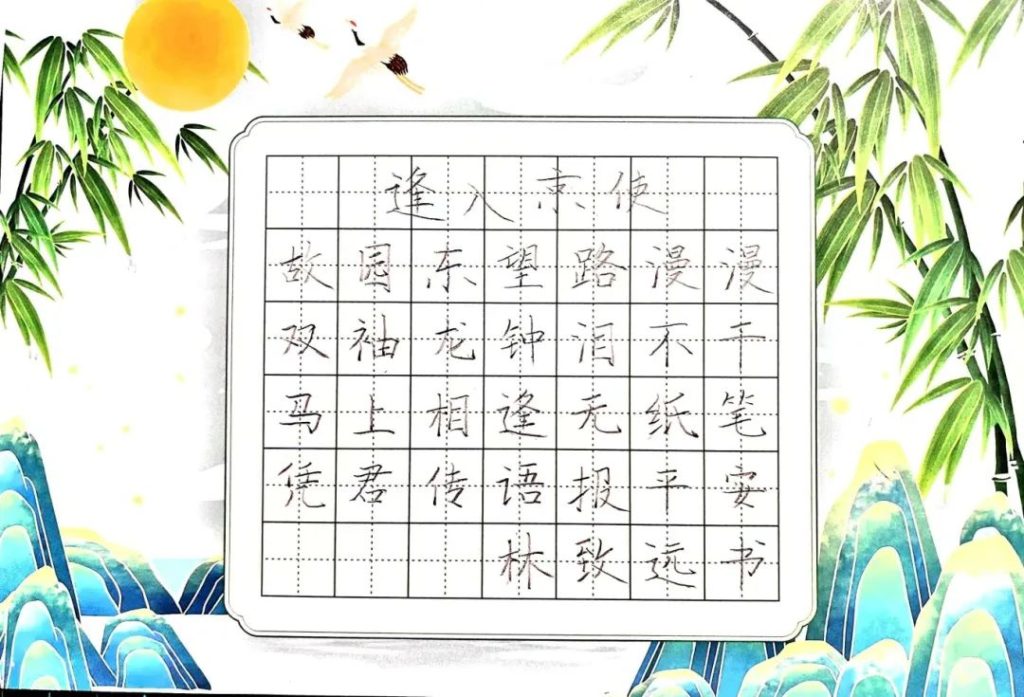 逢入京使
故园东望路漫漫
双袖龙钟泪不干
马上相逢无纸笔
凭君传语报平安
林致远书